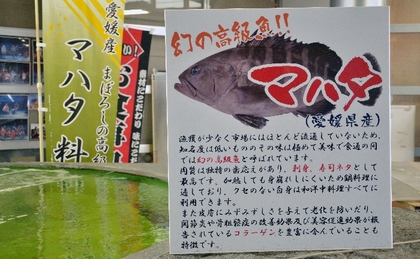 幻の高級魚!!
マハタ
(愛媛県産)
漁獲が少なく市場にはほとんど流通していないため、
知名度は低いもののその味は極めて美味で食通の間
では幻の高級魚と呼ばれています。
肉質は独特の歯応えがあり、刺身、寿司ネタとして
最高です。加熱しても身崩れしにくいため鍋料理に
適しており、クセのない白身は和洋中料理すべてに
利用できます。
また皮膚にみずみずしさを与えて老化を防いだり、
関節炎や骨粗鬆症の改善効果及び美容促進効果が報
告されているコラーゲンを豊富に含んでいることも
特徴です。
愛媛産
まぼろしの高級
マハタ料